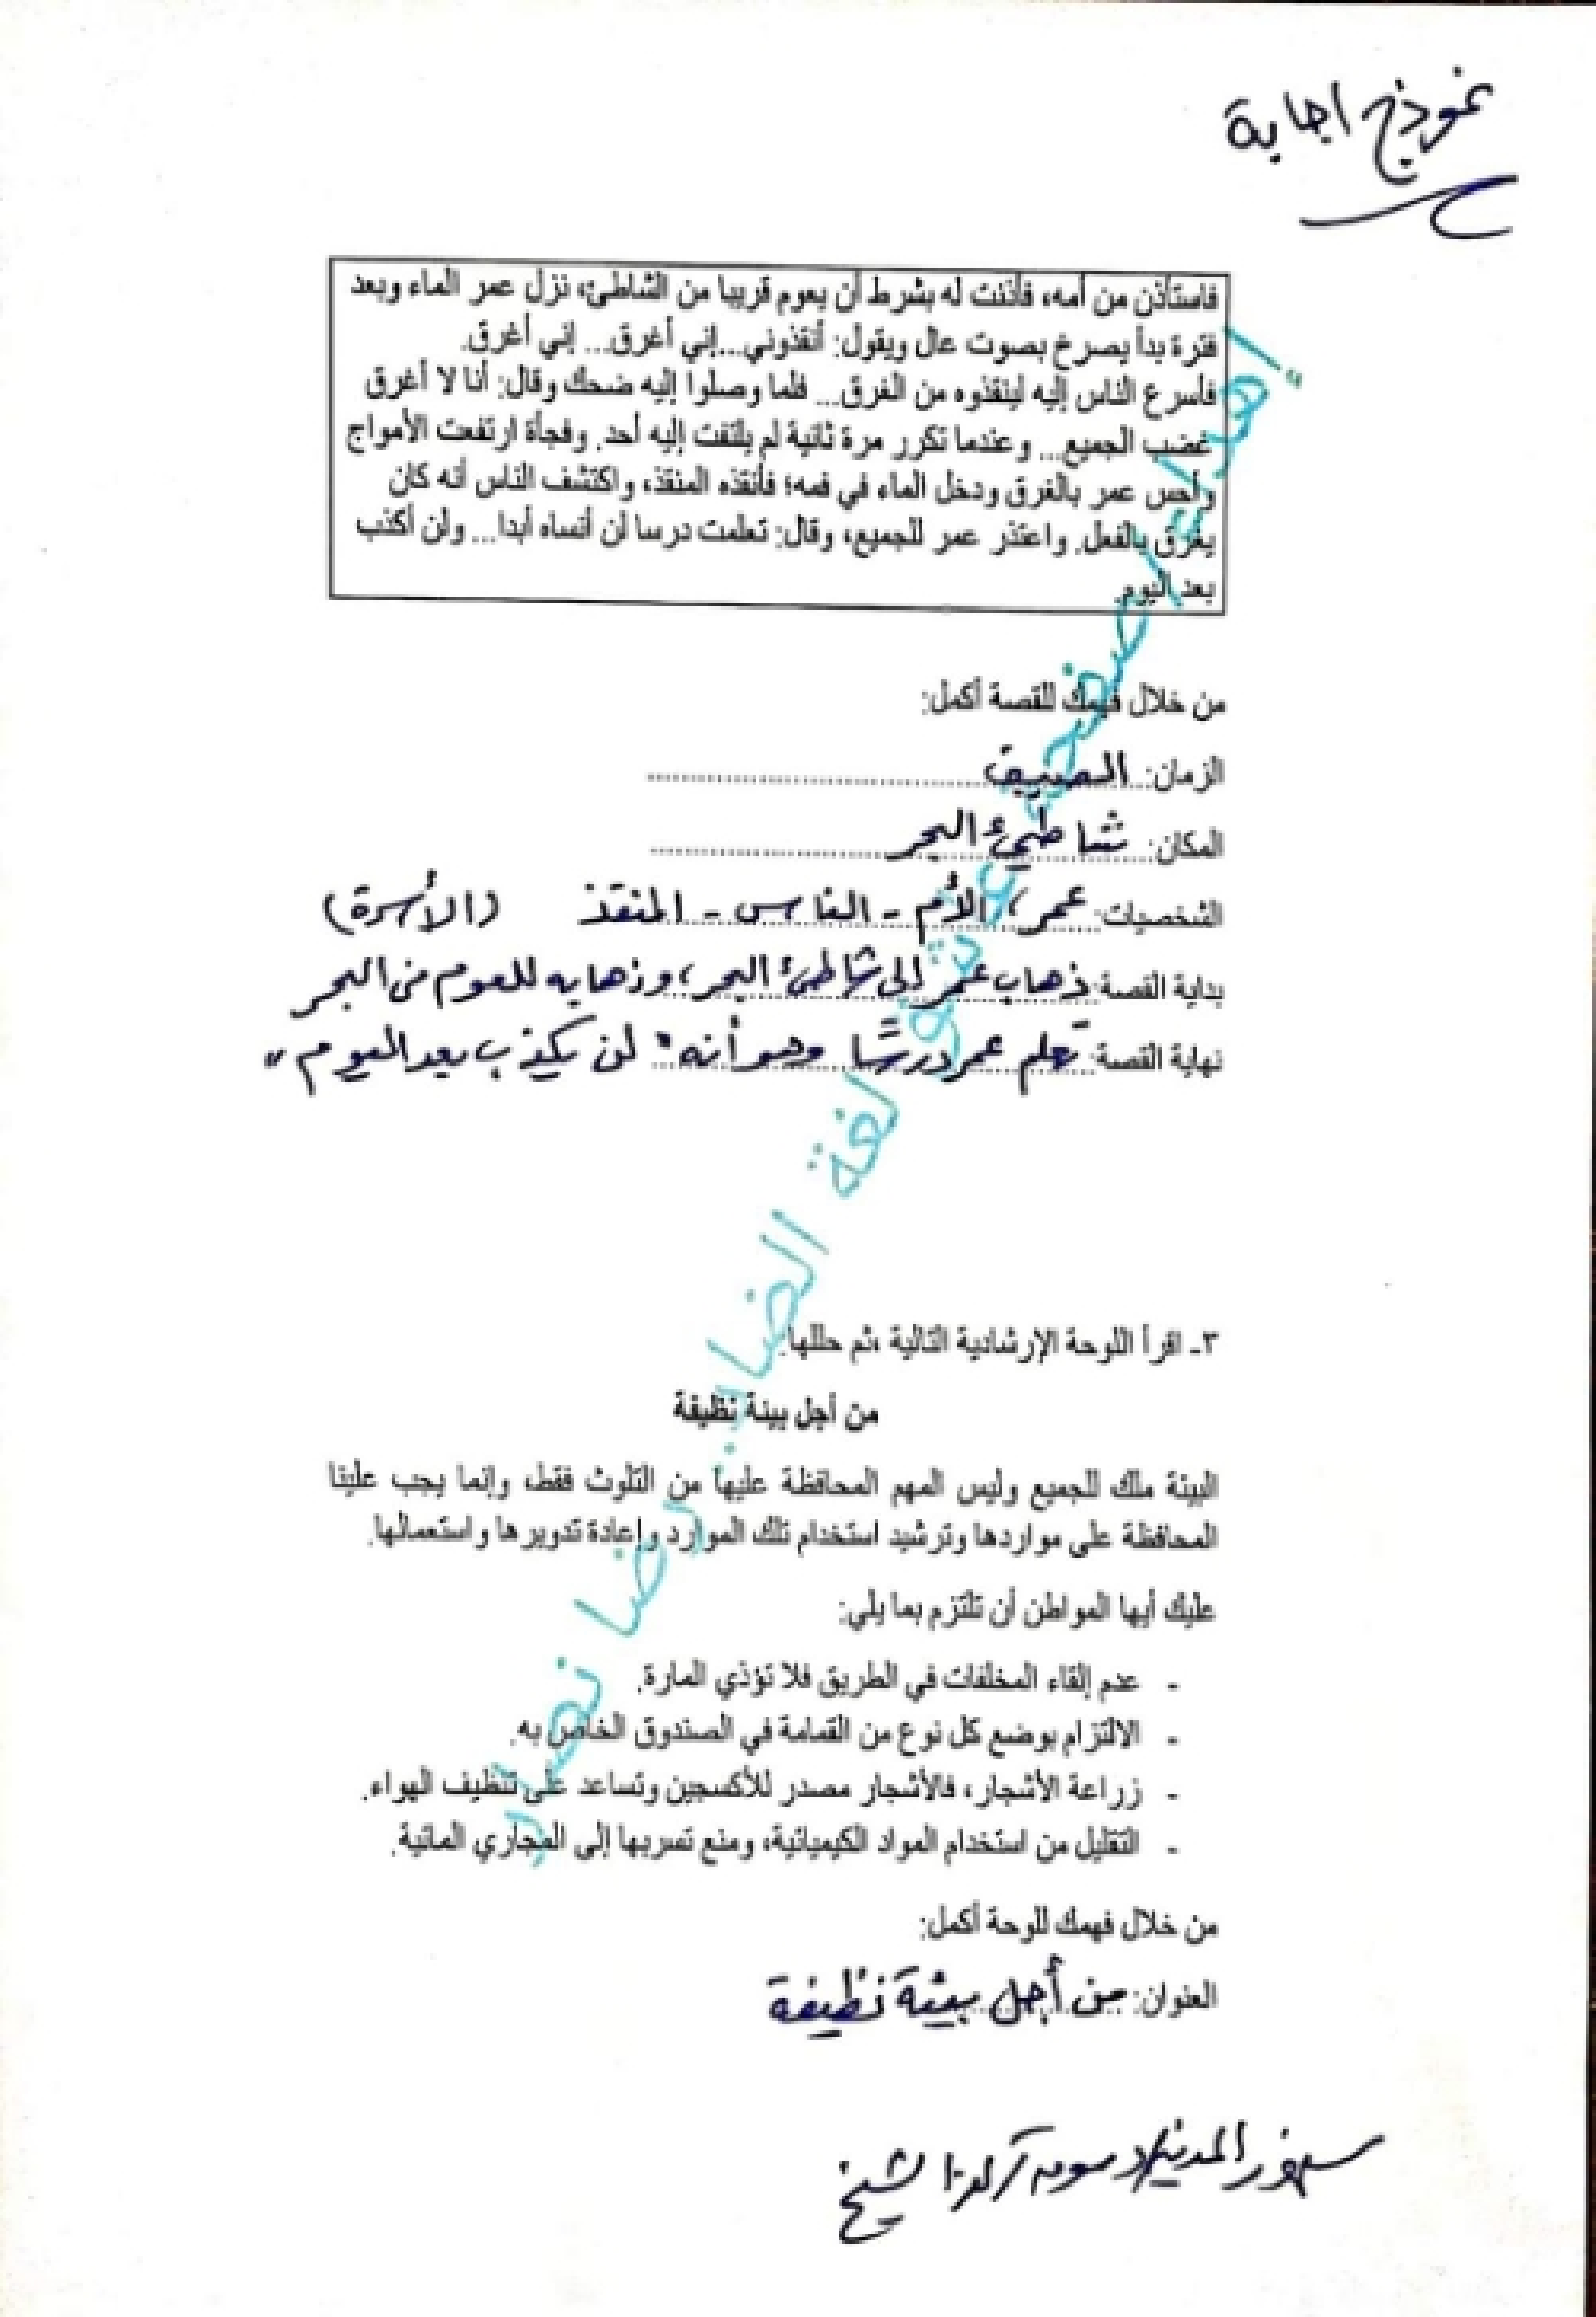 نموذج اجابة
فاستأذن من أمه، فأذنت له بشرط أن يعوم قريبا من الشاطئ، نزل عمر الماء وبعد
فترة بدأ يصرخ بصوت عال ويقول: أنقذوني...إني أغرق... إني أغرق.
فأسرع الناس إليه لينقذوه من الغرق... فلما وصلوا إليه ضحك وقال: أنا لا أغرق
غضب الجميع... وعندما تكرر مرة ثانية لم يلتفت إليه أحد. وفجأة ارتفعت الأمواج
وأحس عمر بالغرق ودخل الماء في فمه؛ فأنقذه المنقذ، واكتشف الناس أنه كان
يغرق بالفعل. واعتذر عمر للجميع، وقال: تعلمت درسا لن أنساه أبدا... ولن أكذب
بعد اليوم.
من خلال فهمك للقصة أكمل:
الزمان: الصيف
المكان: شاطئ البحر
الشخصيات: عمر، الأم - الناس - المنقذ (الأسرة)
بداية القصة: ذهاب عمر إلى شاطئ البحر، وذهابه للعوم في البحر
نهاية القصة: تعلم عمر درسًا وهو أنه "لن يكذب بعد اليوم"
إهداء صفحة عاشقة لغة الضاد
٣- اقرأ اللوحة الإرشادية التالية ،ثم حللها.
من أجل بيئة نظيفة
البيئة ملك للجميع وليس المهم المحافظة عليها من التلوث فقط، وإنما يجب علينا
المحافظة على مواردها وترشيد استخدام تلك الموارد وإعادة تدويرها واستعمالها.
عليك أيها المواطن أن تلتزم بما يلي:
- عدم إلقاء المخلفات في الطريق فلا تؤذي المارة.
- الالتزام بوضع كل نوع من القمامة في الصندوق الخاص به.
- زراعة الأشجار، فالأشجار مصدر للأكسجين وتساعد على تنظيف الهواء.
- التقليل من استخدام المواد الكيميائية، ومنع تسربها إلى المجاري المائية.
من خلال فهمك للوحة أكمل:
العنوان: من أجل بيئة نظيفة
الشيخ